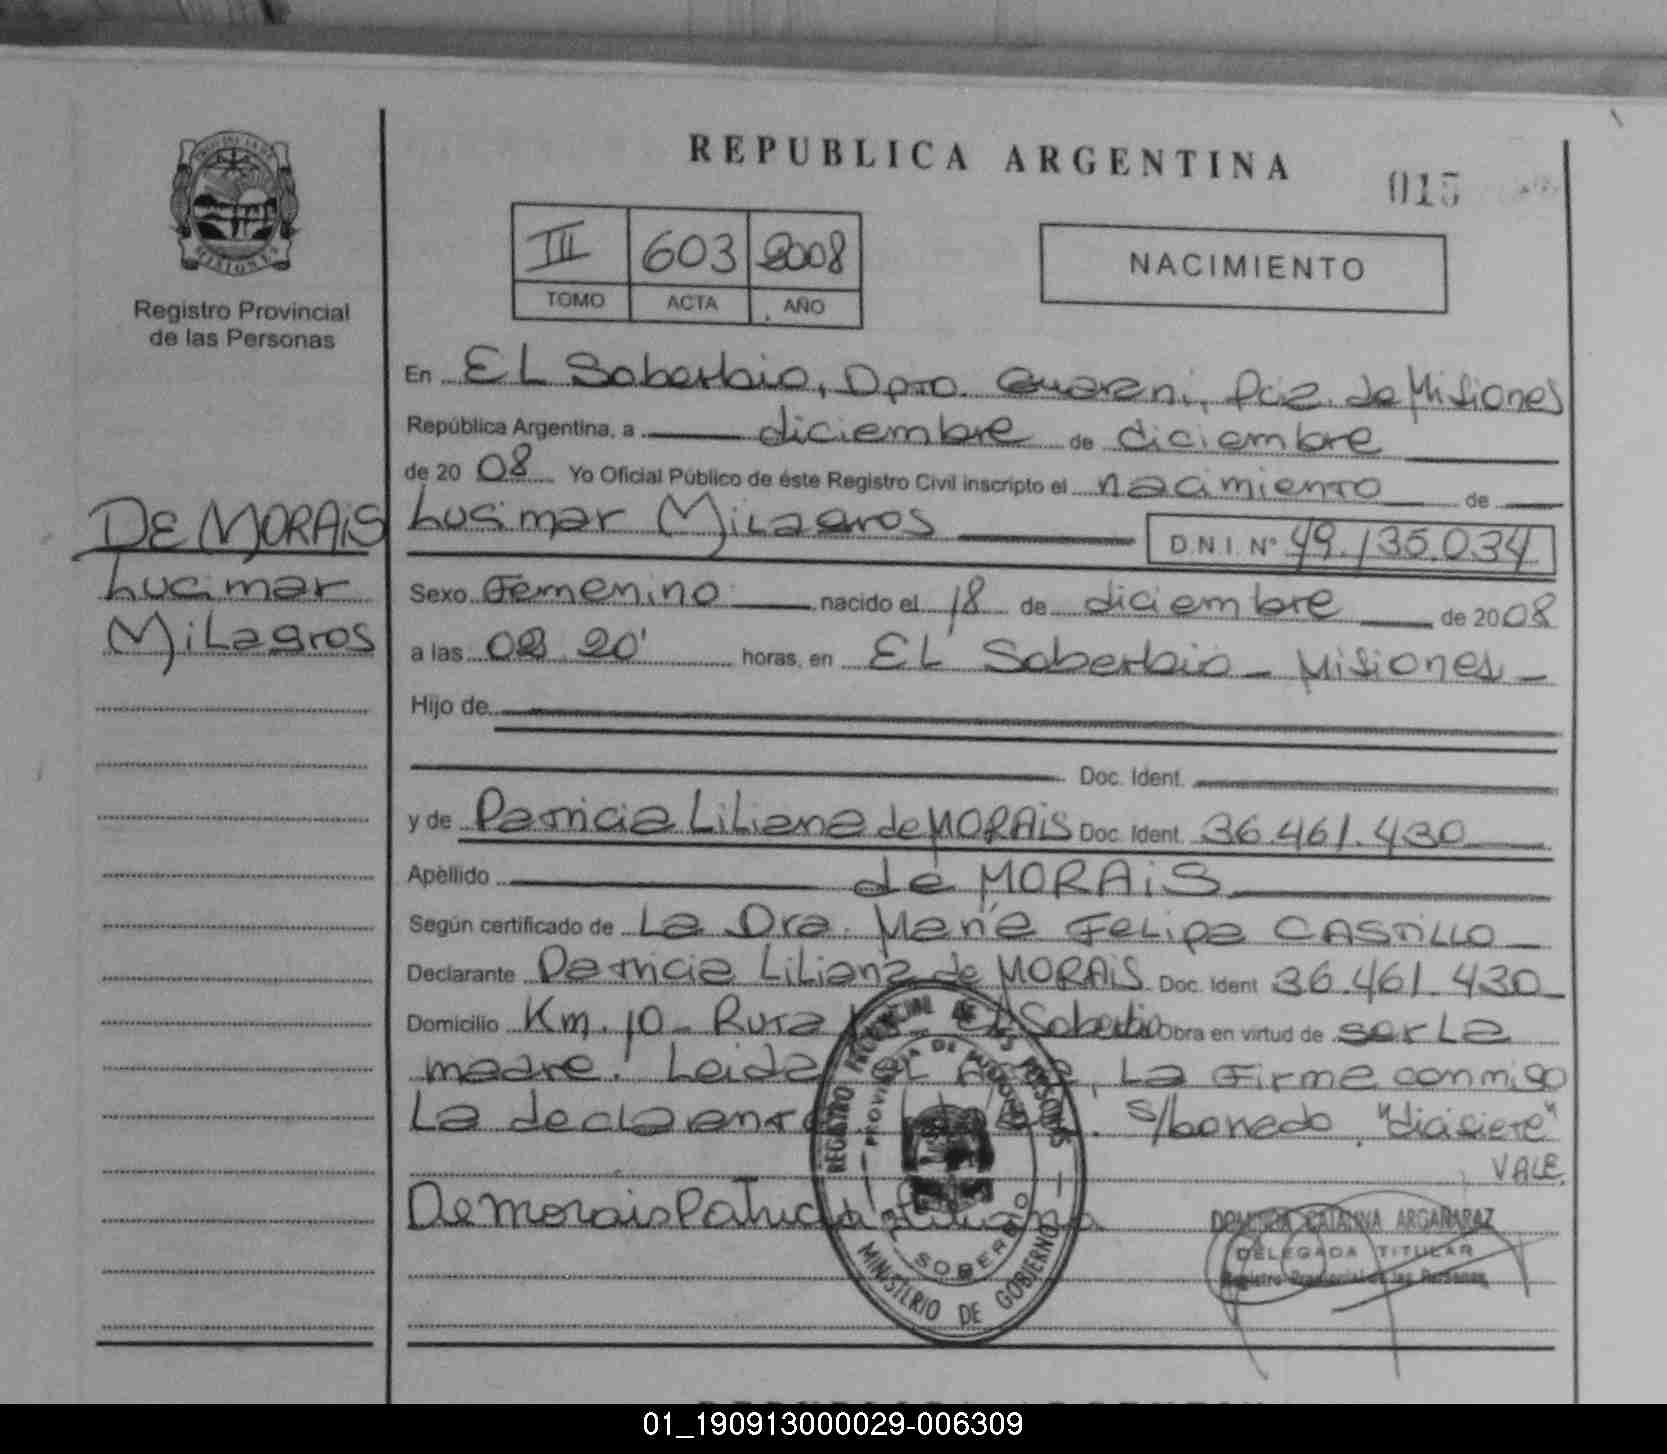 REPUBLICA ARGENTINA
015
MISIONES
Registro Provincial
de las Personas
III 603 2008
TOMO ACTA AÑO
NACIMIENTO
En EL Soberbio, Dpto. Guarani, Pcia. de Misiones
República Argentina, a diciembre de diciembre
de 20 08 Yo Oficial Público de éste Registro Civil inscripto el nacimiento de
DE MORAiS
Lucimar
Milagros
Lucimar Milagros D.N.I. Nº 49.135.034
Sexo Femenino nacido el 18 de diciembre de 2008
a las 02 20' horas, en EL Soberbio - Misiones -
Hijo de
Doc. Ident.
y de Patricia Liliana de MORAiS Doc. Ident. 36.461.430
Apellido de MORAiS
Según certificado de La Dra. María Felipa CASTiLLO
Declarante Patricia Liliana de MORAiS Doc. Ident 36.461.430
Domicilio Km. 10 - Ruta El Soberbio Obra en virtud de ser La
madre. Leida el Acta, La Firma conmigo
La declarante. s/borrado "diesiete"
VALE.
De morais Patricia Liliana
REGISTRO PROVINCIAL DE LAS PERSONAS
PROVINCIA DE MISIONES
EL SOBERBIO
MINISTERIO DE GOBIERNO
CATALINA ARGAÑARAZ
DELEGADA TITULAR
Registro Provincial de las Personas
01_190913000029-006309